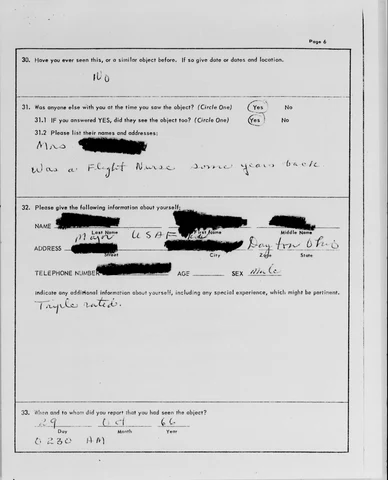 Page 6
30. Have you ever seen this, or a similar object before. If so give date or dates and location.
No
31. Was anyone else with you at the time you saw the object? (Circle One) Yes No
31.1 IF you answered YES, did they see the object too? (Circle One) Yes No
31.2 Please list their names and addresses:
Mrs
Was a Flight Nurse some years back
32. Please give the following information about yourself:
NAME
Last Name First Name Middle Name
Major USAF
ADDRESS Dayton Ohio
Street City Zone State
TELEPHONE NUMBER AGE SEX Male
Indicate any additional information about yourself, including any special experience, which might be pertinent.
Triple rated.
33. When and to whom did you report that you had seen the object?
29 Oct 66
Day Month Year
0230 AM